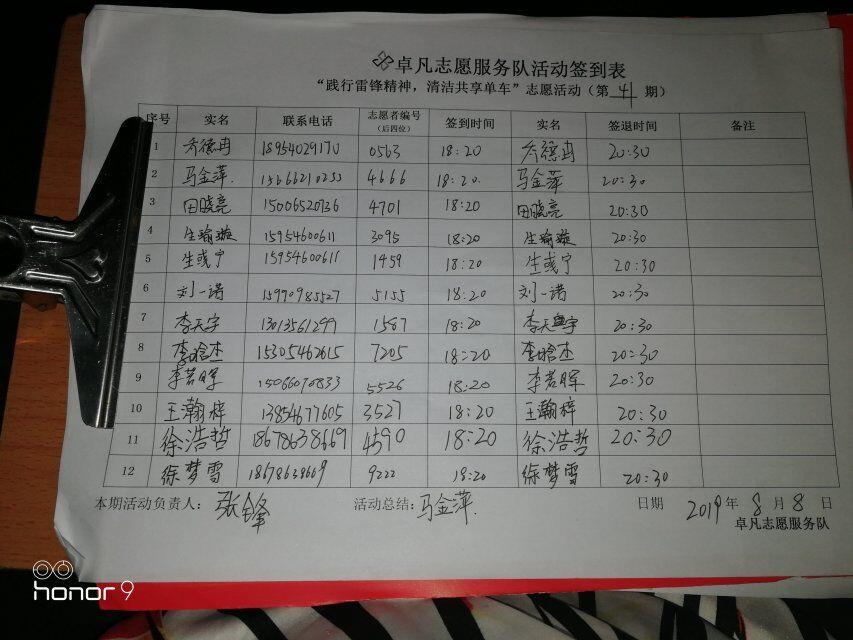 卓凡志愿服务队活动签到表
“践行雷锋精神，清洁共享单车”志愿活动（第 41 期）
序号 实名 联系电话 志愿者编号（后四位） 签到时间 实名 签退时间 备注
1 乔德冉 18954029170 0563 18:20 乔德冉 20:30
2 马金萍. 15666210233 4666 18:20. 马金萍 20:30
3 田晓亮 15006520736 4701 18:20 田晓亮 20:30
4 生瑜璇 15954600611 3095 18:20 生瑜璇 20:30
5 生彧宁 15954600611 1459 18:20 生彧宁 20:30
6 刘一诺 15990985527 5155 18:20 刘一诺 20:30
7 李天宇 13013561299 1587 18:20 李天宇 20:30
8 李晗杰 15305462615 7205 18:20 李晗杰 20:30
9 李若晖 15066070833 5526 18:20 李若晖 20:30
10 王瀚梓 13854677605 3527 18:20 王瀚梓 20:30
11 徐浩哲 18678638669 4590 18:20 徐浩哲 20:30
12 徐梦雪 18678638669 9222 18:20 徐梦雪 20:30
本期活动负责人： 张锋 活动总结： 马金萍. 日期 2019 年 8 月 8 日
卓凡志愿服务队
honor 9